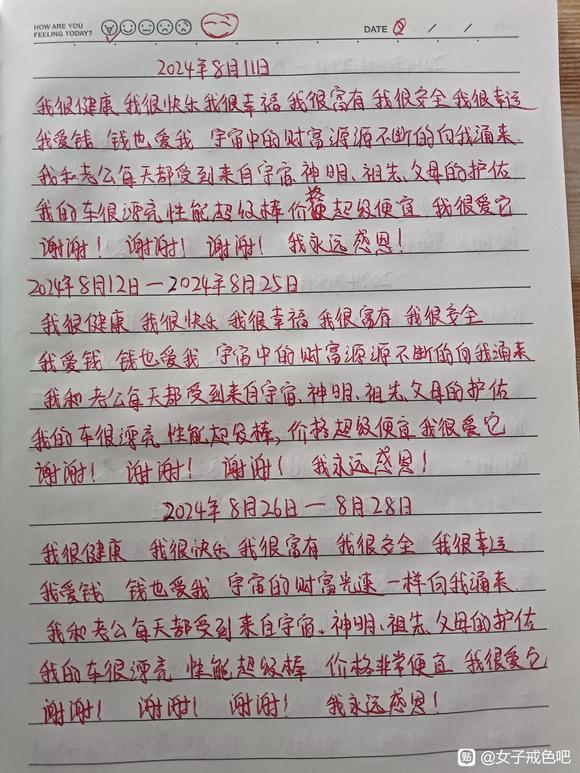 HOW ARE YOU
FEELING TODAY?
DATE / /
2024年8月11日
我很健康 我很快乐 我很幸福 我很富有 我很安全 我很幸运
我爱钱 钱也爱我 宇宙中的财富源源不断的向我涌来
我和老公每天都受到来自宇宙、神明、祖先、父母的护佑
我的车很漂亮 性能超级棒 价格超级便宜 我很爱它
谢谢! 谢谢! 谢谢! 我永远感恩!
2024年8月12日—2024年8月25日
我很健康 我很快乐 我很幸福 我很富有 我很安全
我爱钱 钱也爱我 宇宙中的财富源源不断的向我涌来
我和老公每天都受到来自宇宙、神明、祖先、父母的护佑
我的车很漂亮 性能超级棒, 价格超级便宜 我很爱它
谢谢! 谢谢! 谢谢! 我永远感恩!
2024年8月26日—8月28日
我很健康 我很快乐 我很富有 我很安全 我很幸运
我爱钱 钱也爱我 宇宙的财富光速一样向我涌来
我和老公每天都受到来自宇宙、神明、祖先、父母的护佑
我的车很漂亮 性能超级棒 价格非常便宜 我很爱它
谢谢! 谢谢! 谢谢! 我永远感恩!
贴 @女子戒色吧